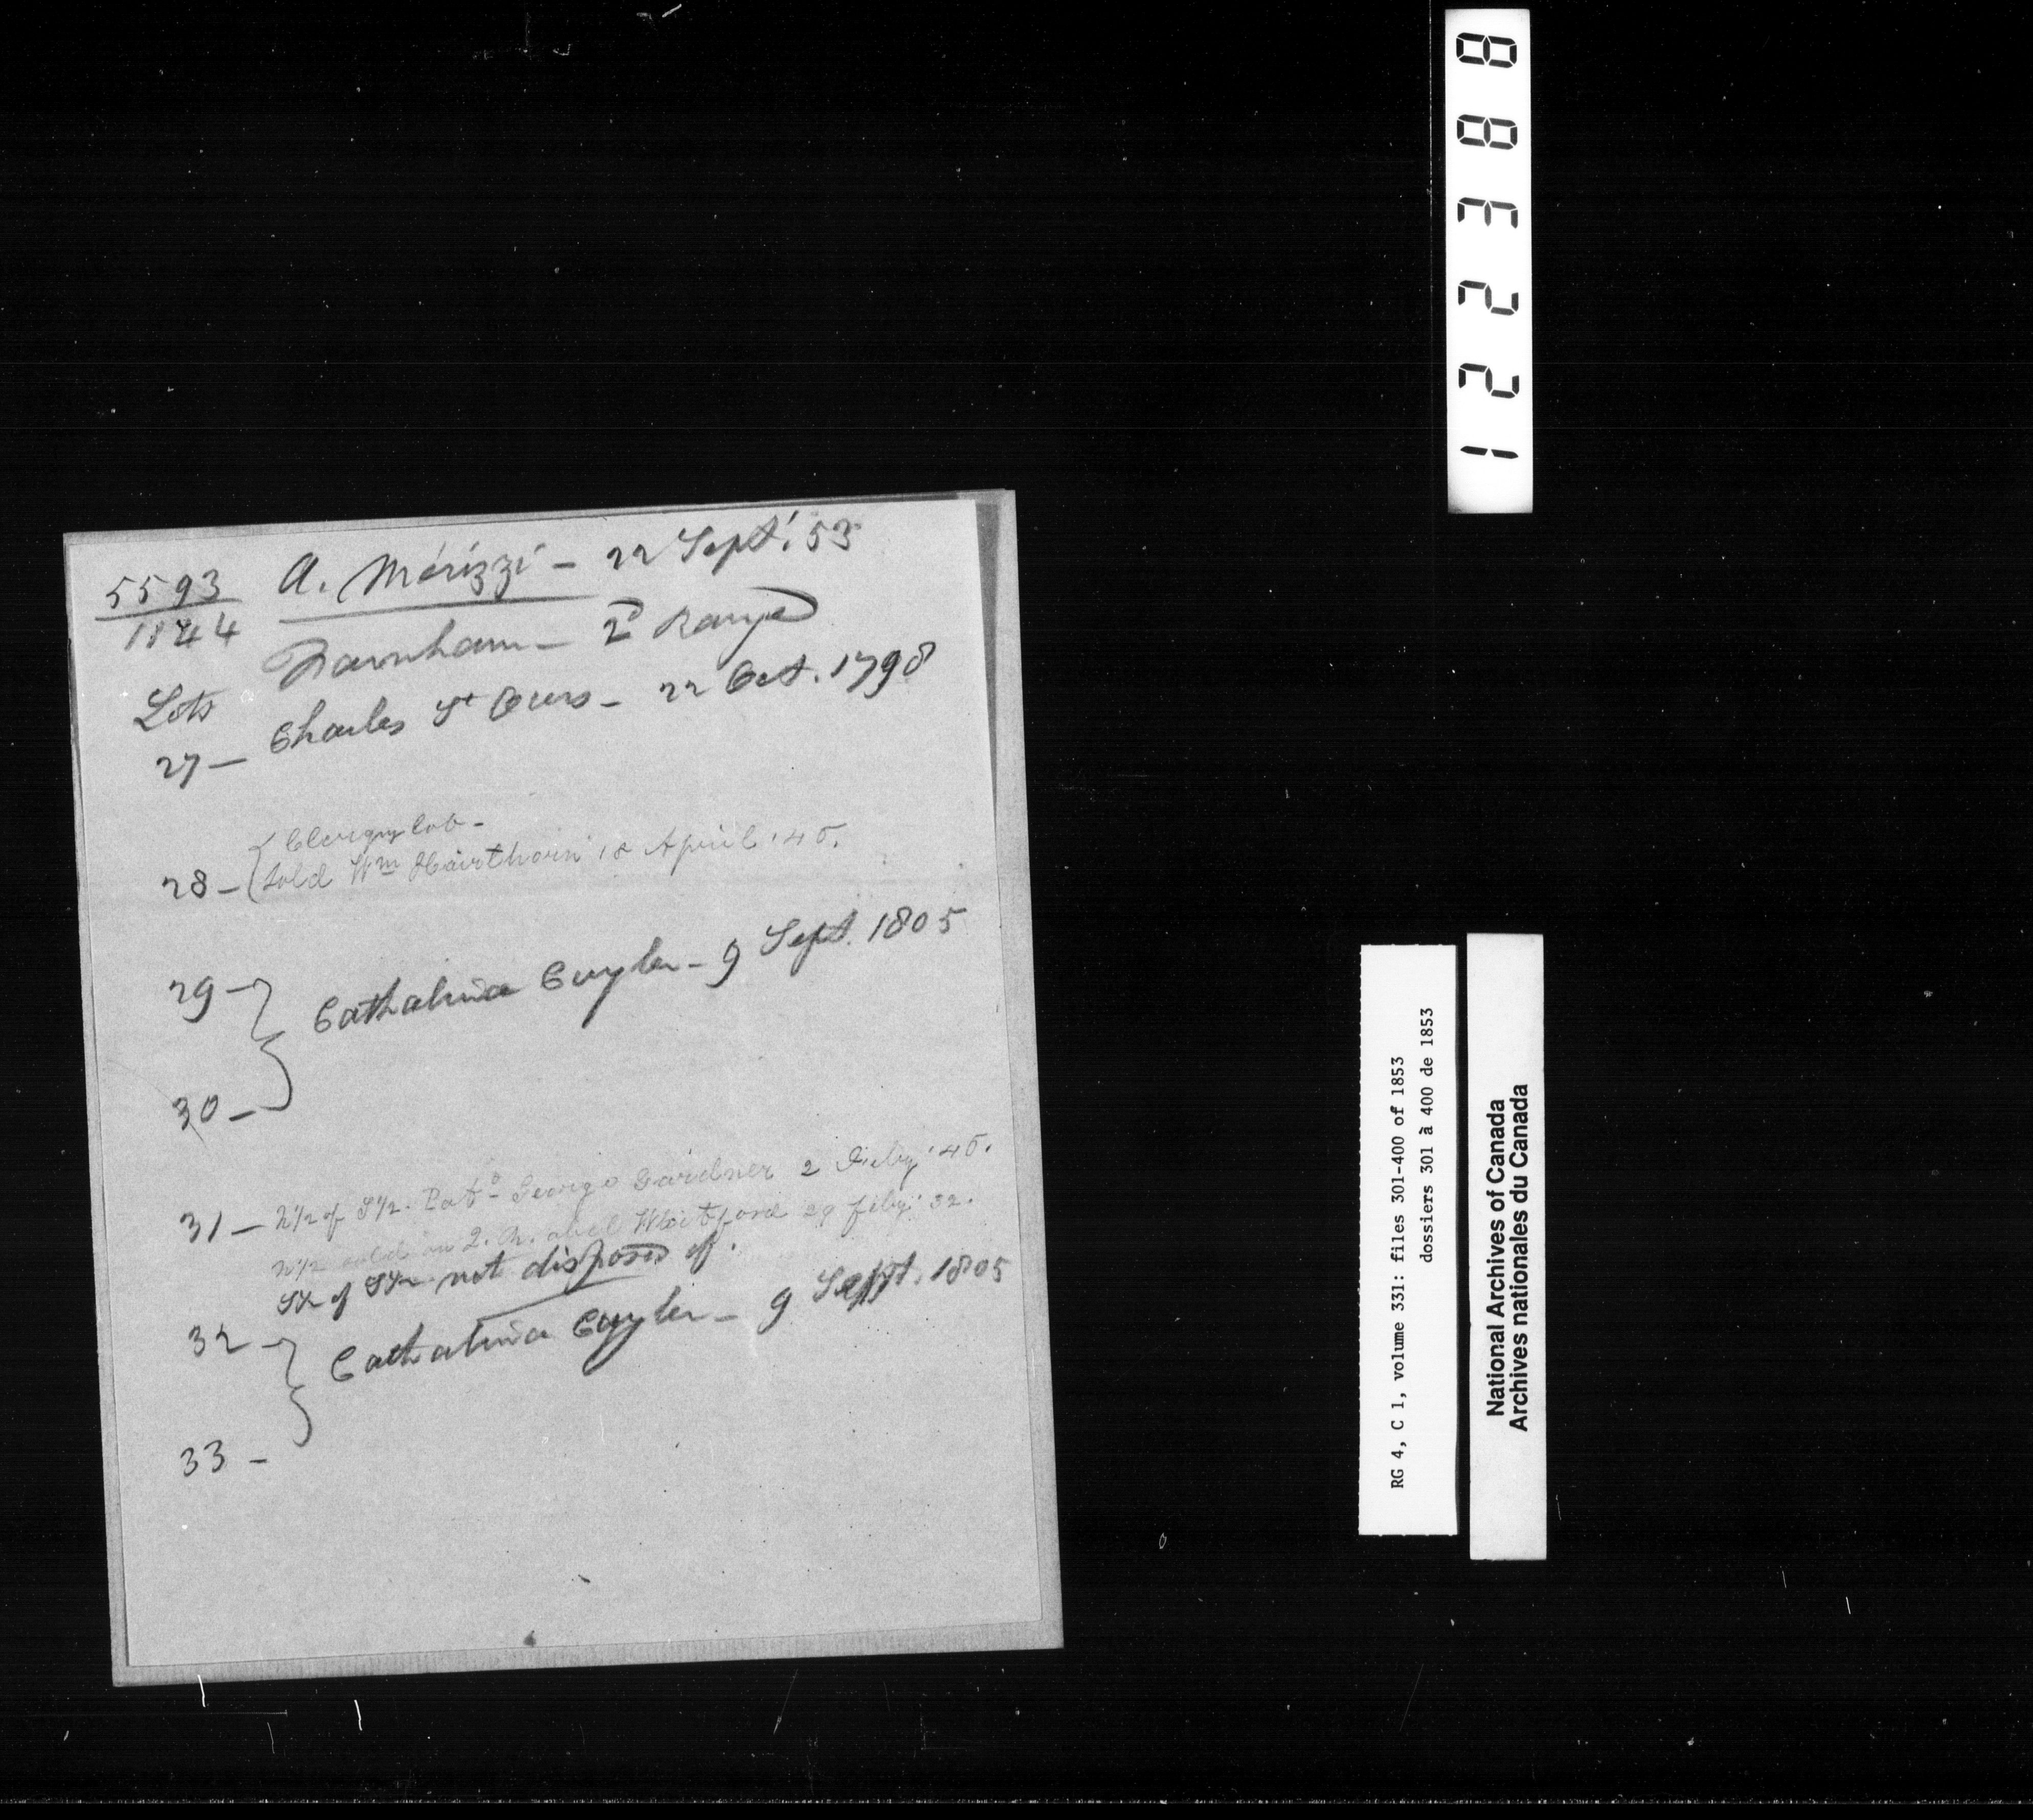 5593
1144
A. Mérizzi - 22 Sept! 53
Farnham - 2d Range
Lots
27 - Charles St Ours - 22 Oct. 1798
Clergy lot -
28 - Sold Wm Hairthorn 18 April '45.
29 -
Cathalina Cuyler - 9 Sept. 1805
30 -
31 - N½ of S½. Patd George Gardner 2 Feby '45.
N½ sold on Q. R. abel Whitford 29 feby: 32.
S½ of S½ not disposed of.
32 -
Cathalina Cuyler - 9 Sept. 1805
33 -
122388
RG 4, C 1, volume 331: files 301-400 of 1853
dossiers 301 à 400 de 1853
National Archives of Canada
Archives nationales du Canada